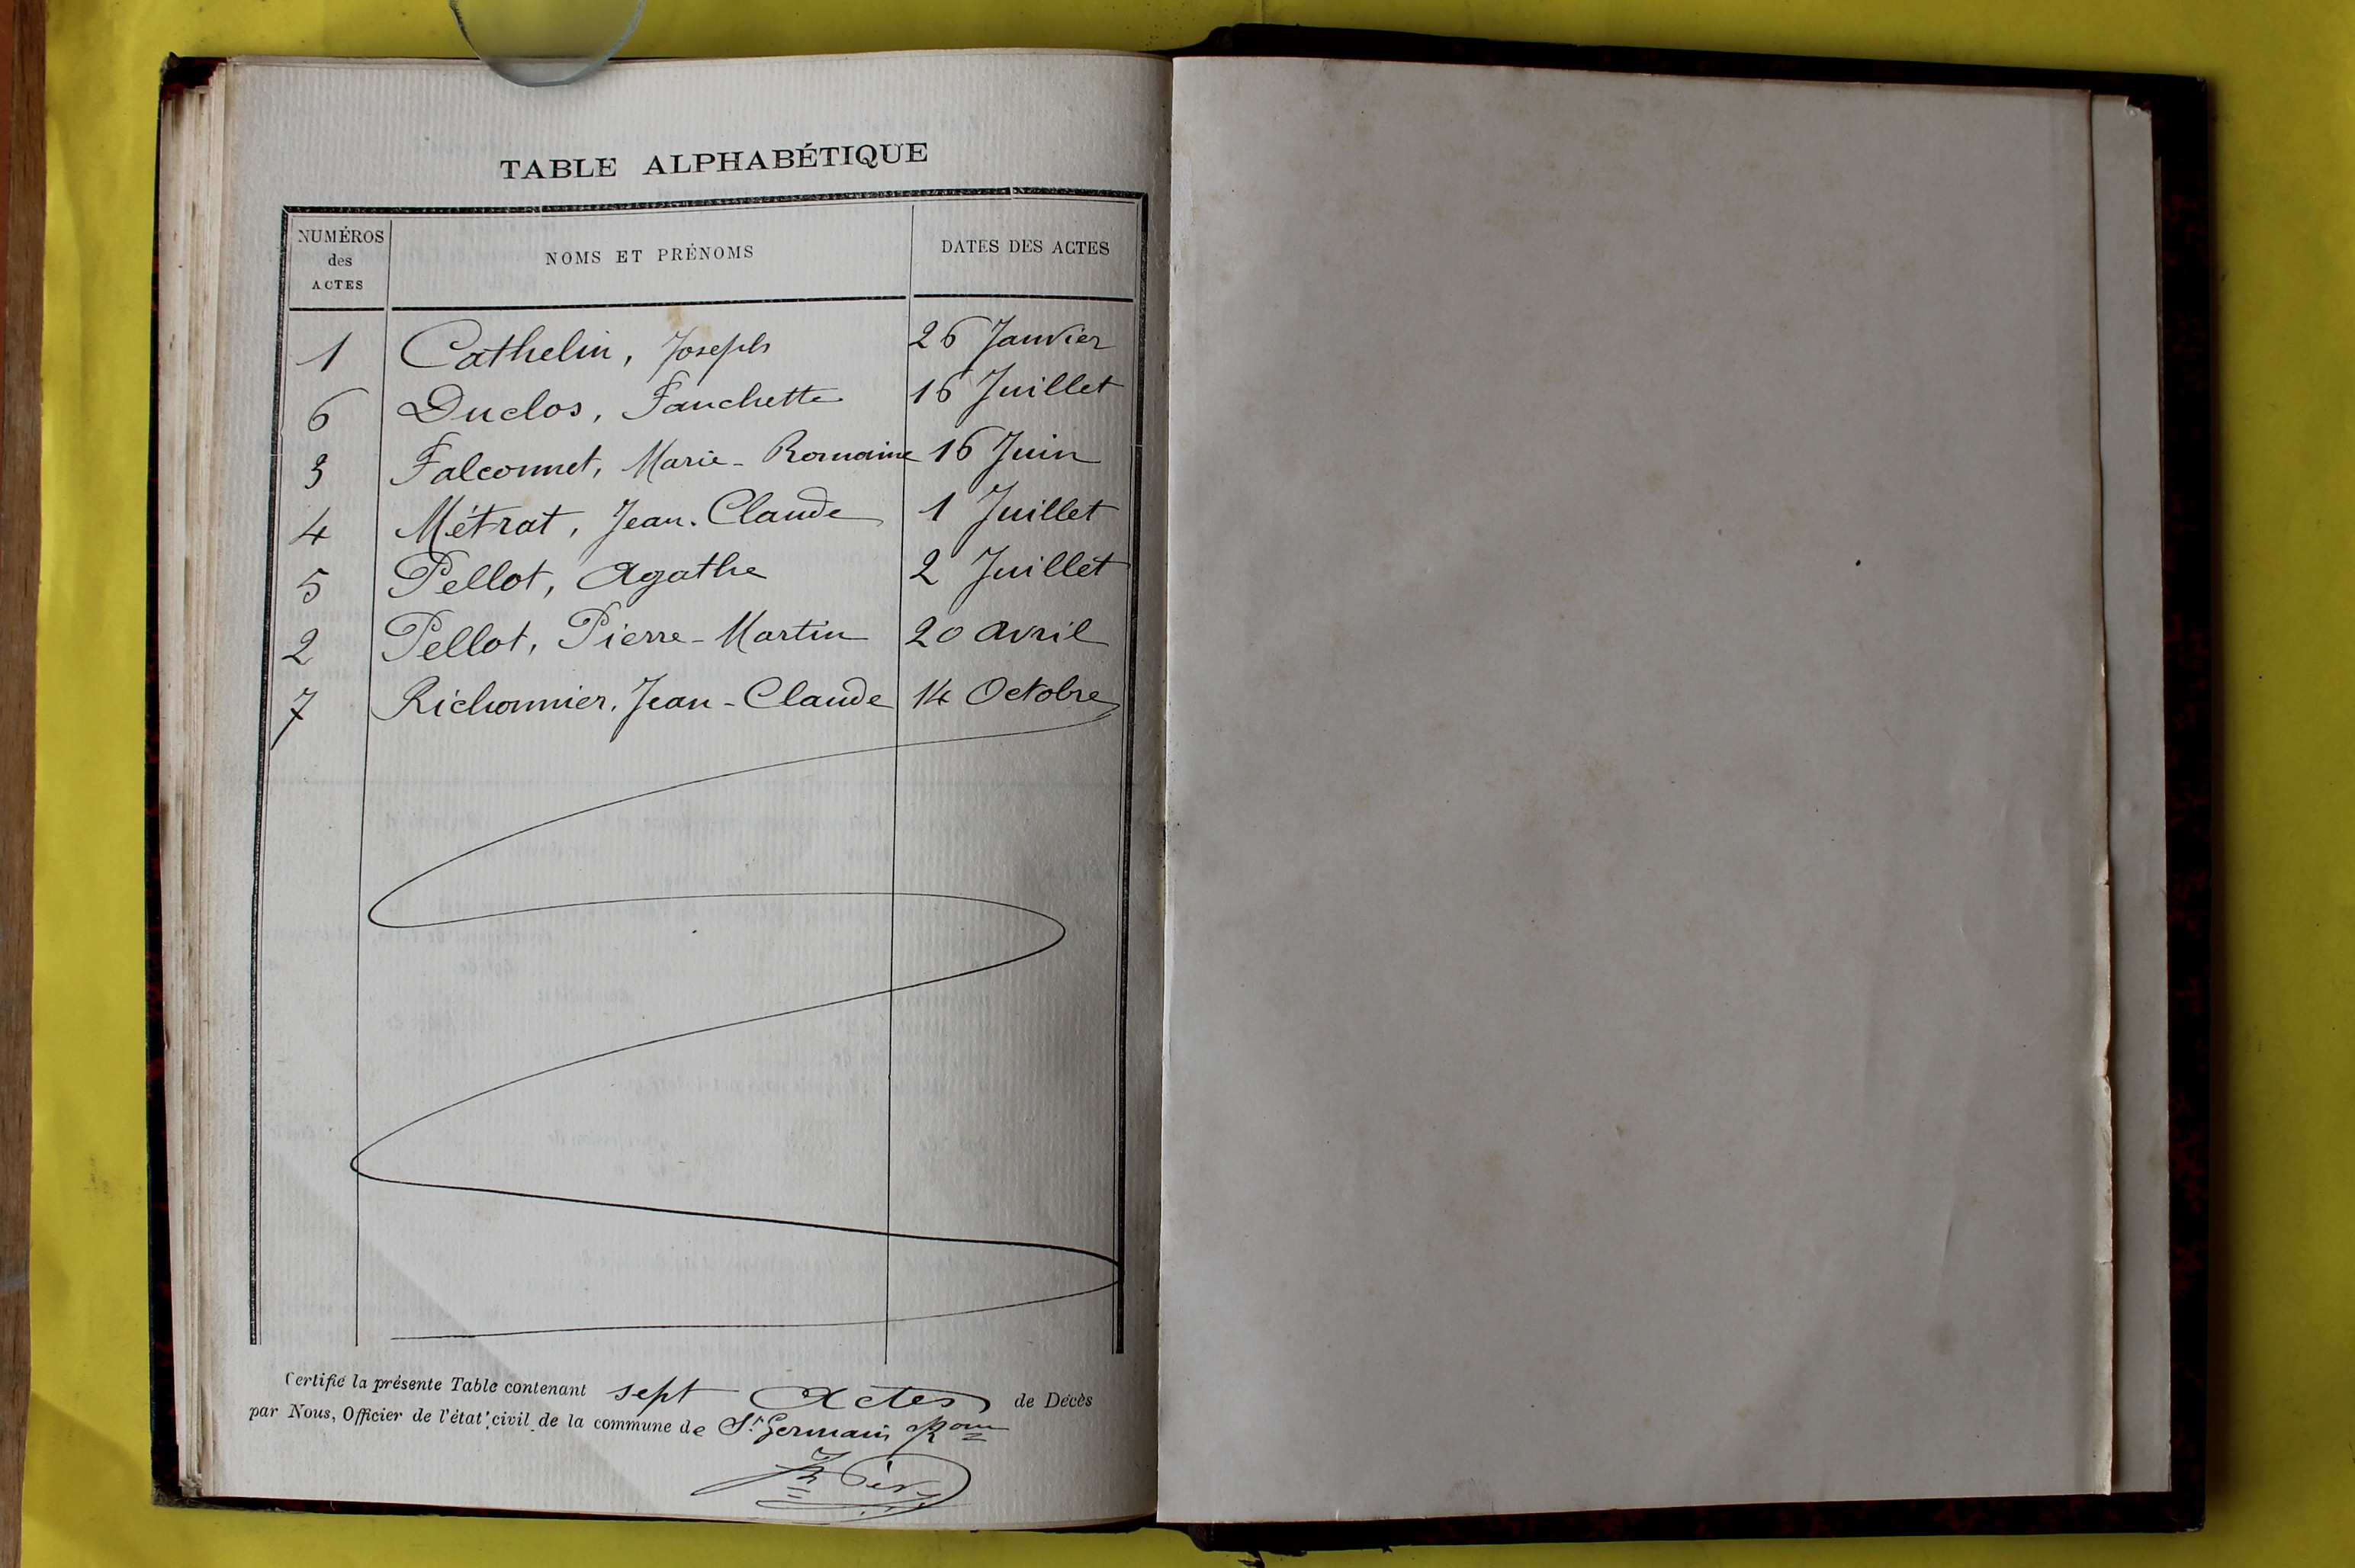 TABLE ALPHABÉTIQUE
NUMÉROS des ACTES NOMS ET PRÉNOMS DATES DES ACTES
1 Cathelin, Joseph 26 Janvier
6 Duclos, Fanchette 16 Juillet
3 Falconnet, Marie-Romaine 16 Juin
4 Métrat, Jean-Claude 1 Juillet
5 Pellot, Agathe 2 Juillet
2 Pellot, Pierre-Martin 20 Avril
7 Richonnier, Jean-Claude 14 Octobre
Certifié la présente Table contenant sept Actes de Décès
par Nous, Officier de l'état civil de la commune de St. Germain